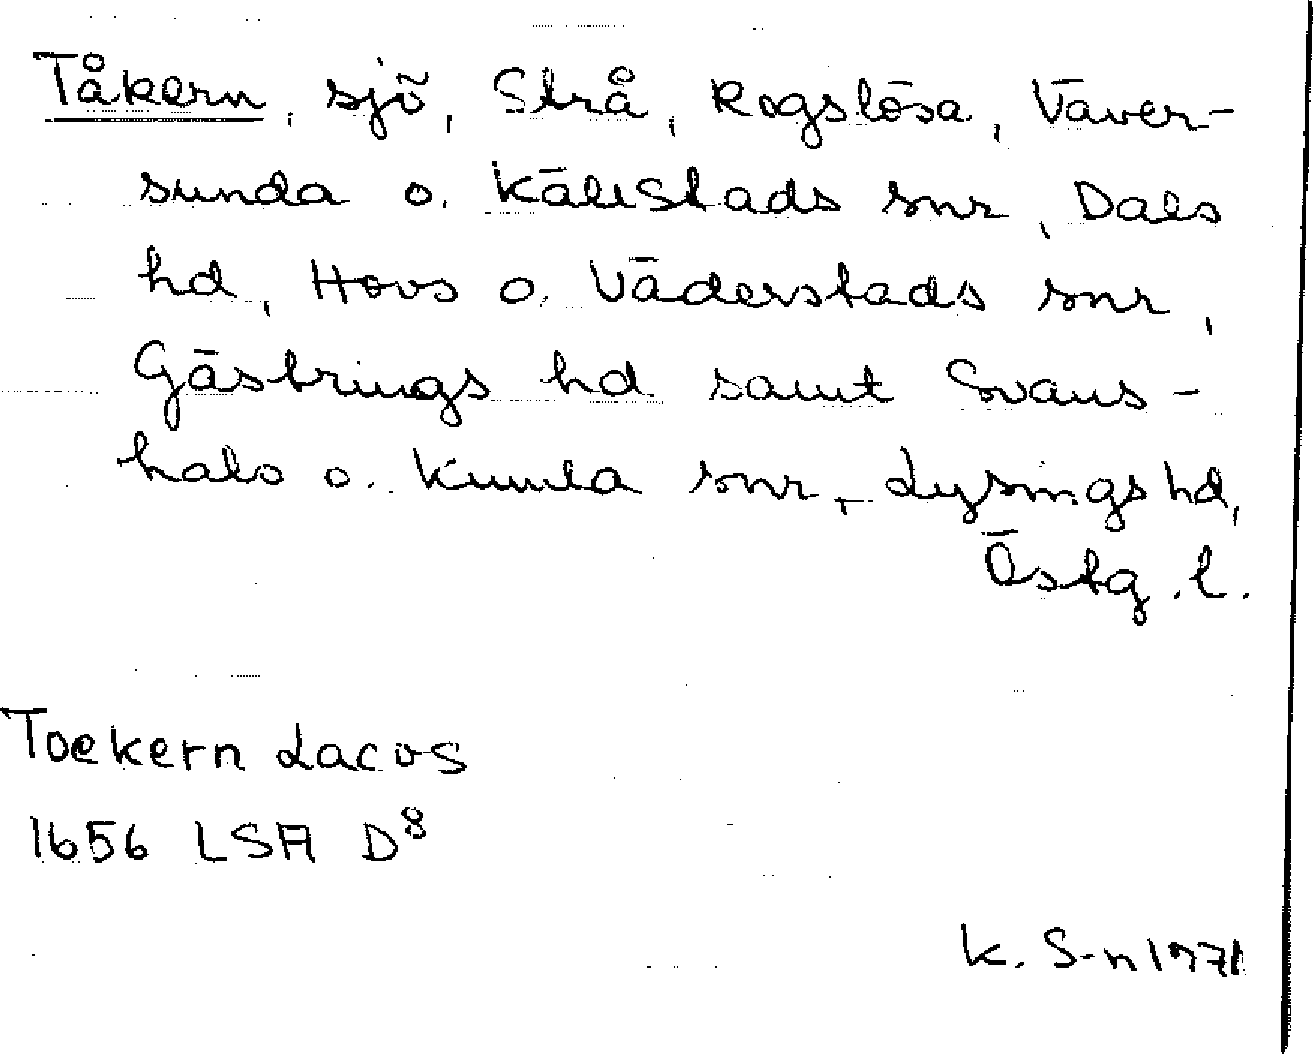 Tåkern, sjö, Strå, Rogslösa, Väver-
sunda o. Källstads snr, Dals
hd, Hovs o. Väderstads snr,
Gästrings hd samt Svans-
hals o. Kumla snr, Lysings hd,
Östg. l.
Toekern Lacus
1656 LSA D8
K. S-n 1971